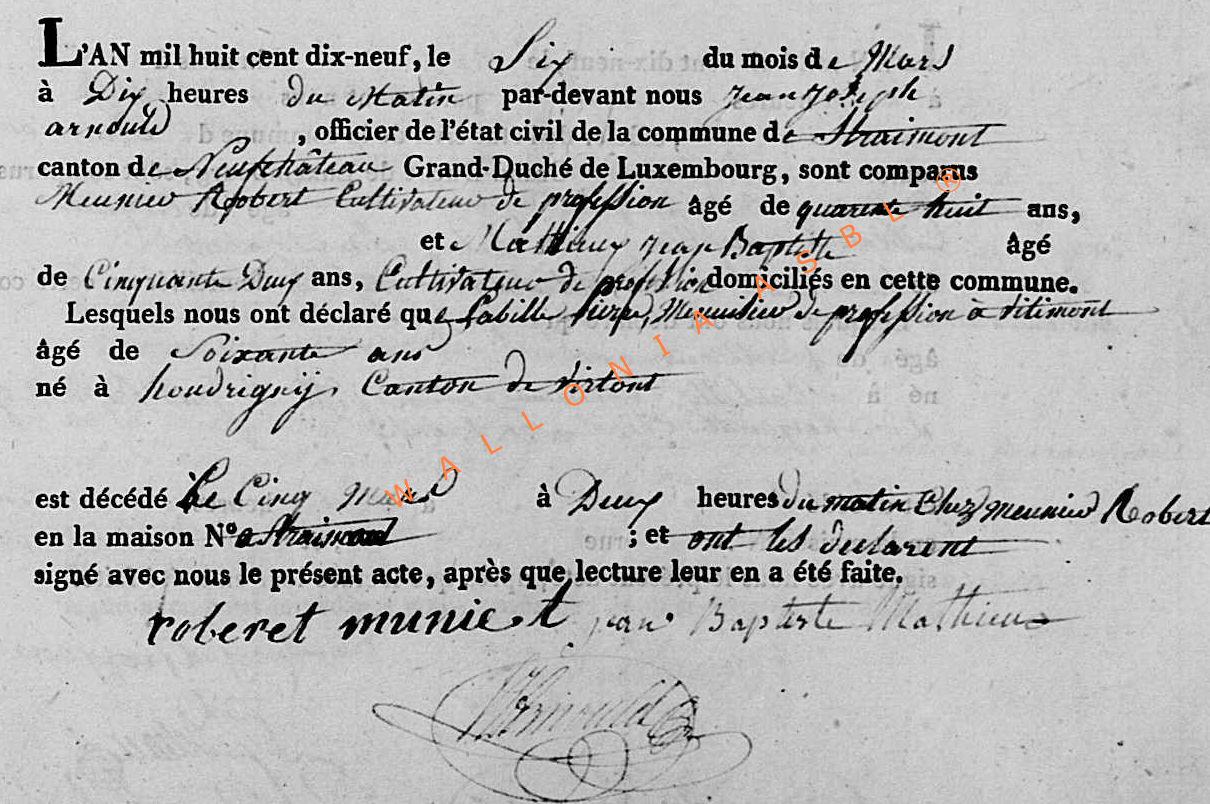 L'AN mil huit cent dix-neuf, le Six du mois de Mars
à Dix heures du Matin par-devant nous jean joseph
arnould , officier de l'état civil de la commune de Straimont
canton de Neufchâteau Grand-Duché de Luxembourg, sont comparus
Meunier Robert Cultivateur de profession âgé de quarente huit ans,
et Mathieux jean Baptiste âgé
de Cinquante Deux ans, Cultivateur de profession domiciliés en cette commune.
Lesquels nous ont déclaré que Labille pierre Menuisier de profession à titimont
âgé de Soixante ans
né à houdrigny Canton de virtont
est décédé Le Cinq Mars à Deux heures du matin Chez Meunier Robert
en la maison N° a Straimont ; et ont les declarent
signé avec nous le présent acte, après que lecture leur en a été faite.
roberet muniet jean Baptiste Mathieux
Arnould
WALLONIA ASBL ®